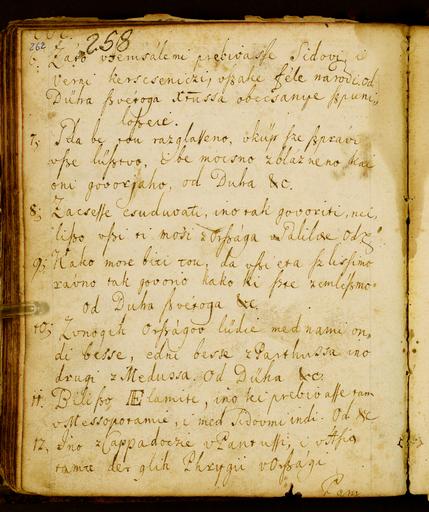 262 258
6; Zato vJerusalemi prebivasse Sidovi, i
verni kerscseniczi, vszake fele narodi. Od
Duha szvetoga Xtussa obecsanye szpuni,
losze.
7; Kda be tou razglasseno, vküp sze szpravi
vsze lüsztvo, i be mocsno zblazneno kai
oni govorjaho, od Duha &c.
8; Zacsesse csuduvati, ino tak govoriti, nei,
lizto vszi ti mosi z Orszaga vGalilee Od &
9; Kako more biti tou, da vszi eta szlissimo
ravno tak govorio kako ki szte zemlészmo
Od Duha szvetoga &c.
10; Zvnogih Orszagov lüdie med nami on,
di besse, edni besse z Parthussa ino
drugi z Medussa. Od Düha &c.
11. Bili szo Ælamite, ino kei prebivasse tam
vMessopotamie, i med Sidovmi indi. Od &c
12, Ino z Cappadoczie vPantussi, i vAsie
tamre der glih Phrygii vOrszagi
Pam